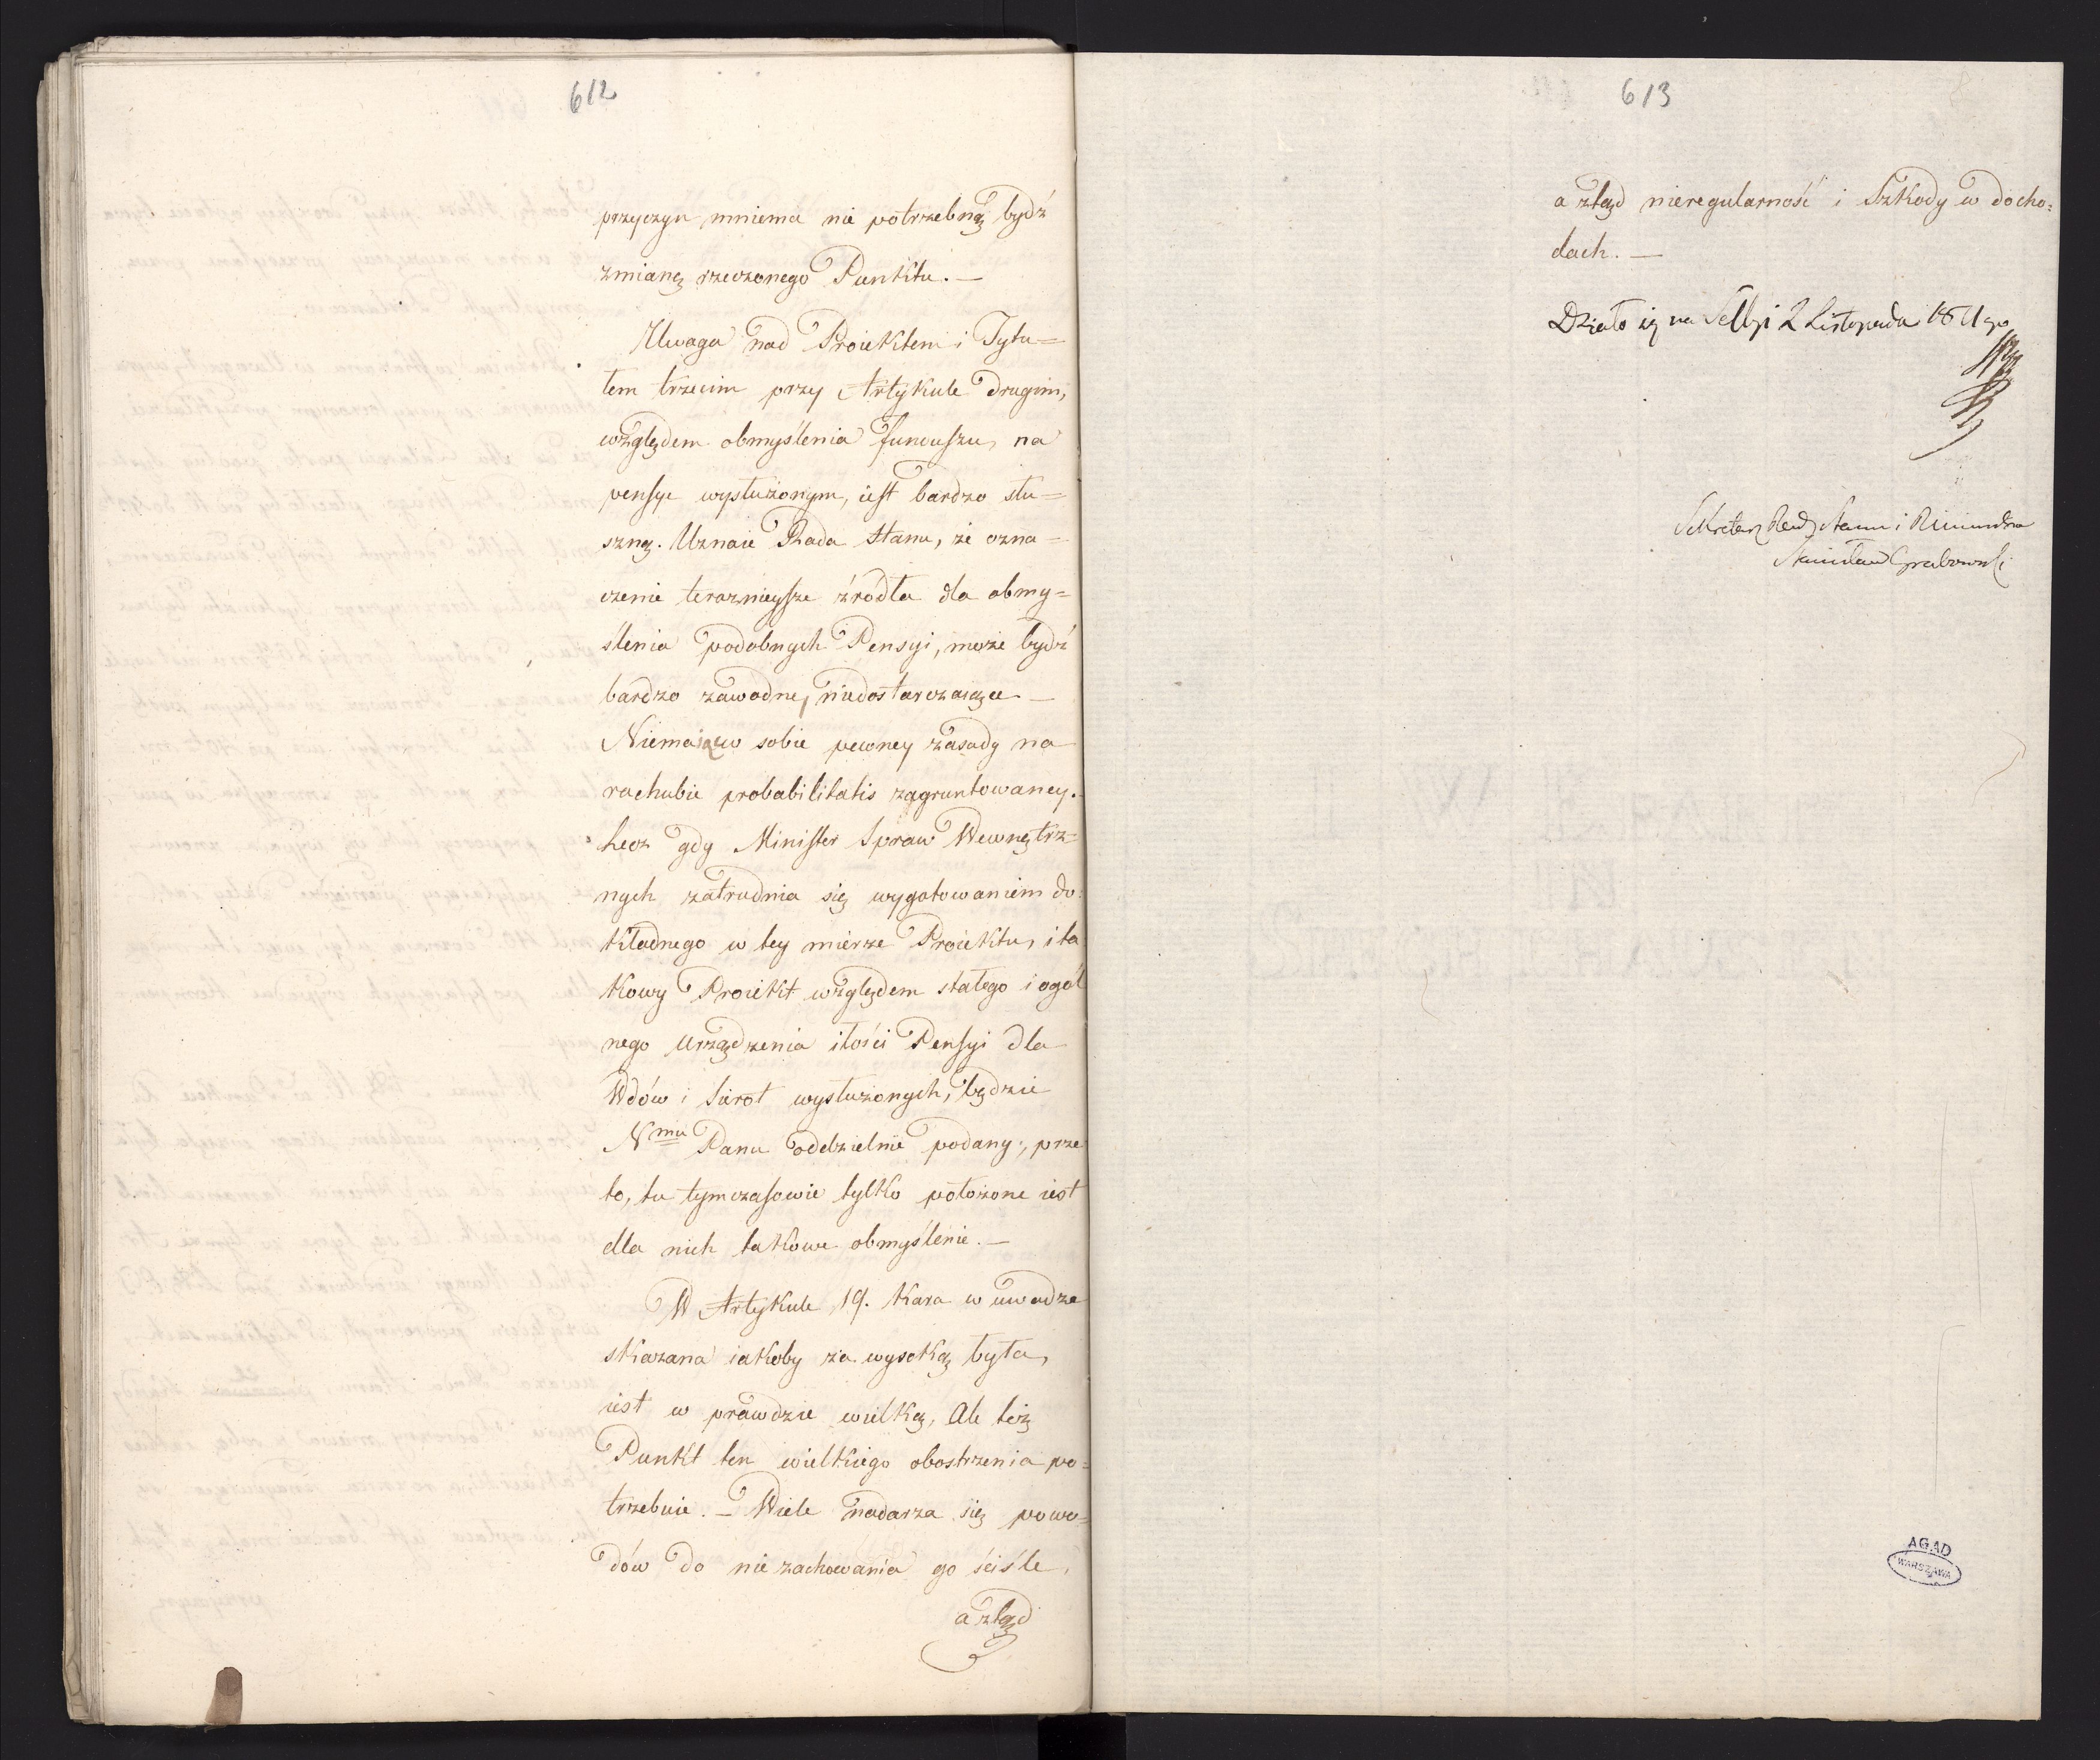 612
przyczyn mniema nie potrzebną bydź
zmianę rzeczonego Punktu. —
Uwaga nad Proiektem i Tytu=
łem trzecim przy Artykule drugim,
względem obmyślenia funduszu, na
pensye wysłużonym, iest bardzo słu=
szną. Uznaie Rada Stanu, że ozna=
czenie teraznieysze źródła dla obmy=
ślenia podobnych Pensyi, może bydź
bardzo zawodne, niedostarczaiące —
Niemaiąc w sobie pewney zasady na
rachubie probabilitatis zagruntowaney.
Lecz gdy Minister Spraw Wewnętrz=
nych zatrudnia się wygotowaniem do=
kładnego w tey mierze Proiektu, i ta
kowy Proiekt względem stałego i ogól
nego Urządzenia ilości Pensyi dla
Wdów i Sierot wysłużonych, będzie
Nmu Panu oddzielnie podany; prze
to, tu tymczasowie tylko położone iest
dla nich takowe obmyślenie. —
W Artykule 19. Kara w uwadze
skazana iakoby za wysoką była,
iest w prawdzie wielką, Ale też
Punkt ten wielkiego obostrzenia po=
trzebuie. — Wiele nadarza się powo=
dów do nie zachowania go ściśle,
a ztąd
613
a ztąd nieregularność i Szkody w docho=
dach. —
Działo się na Sessyi 2 Listopada 1811 go
Sekretarz Rady Stanu i Ministrów
Stanisław Grabowski
AGAD
WARSZAWA